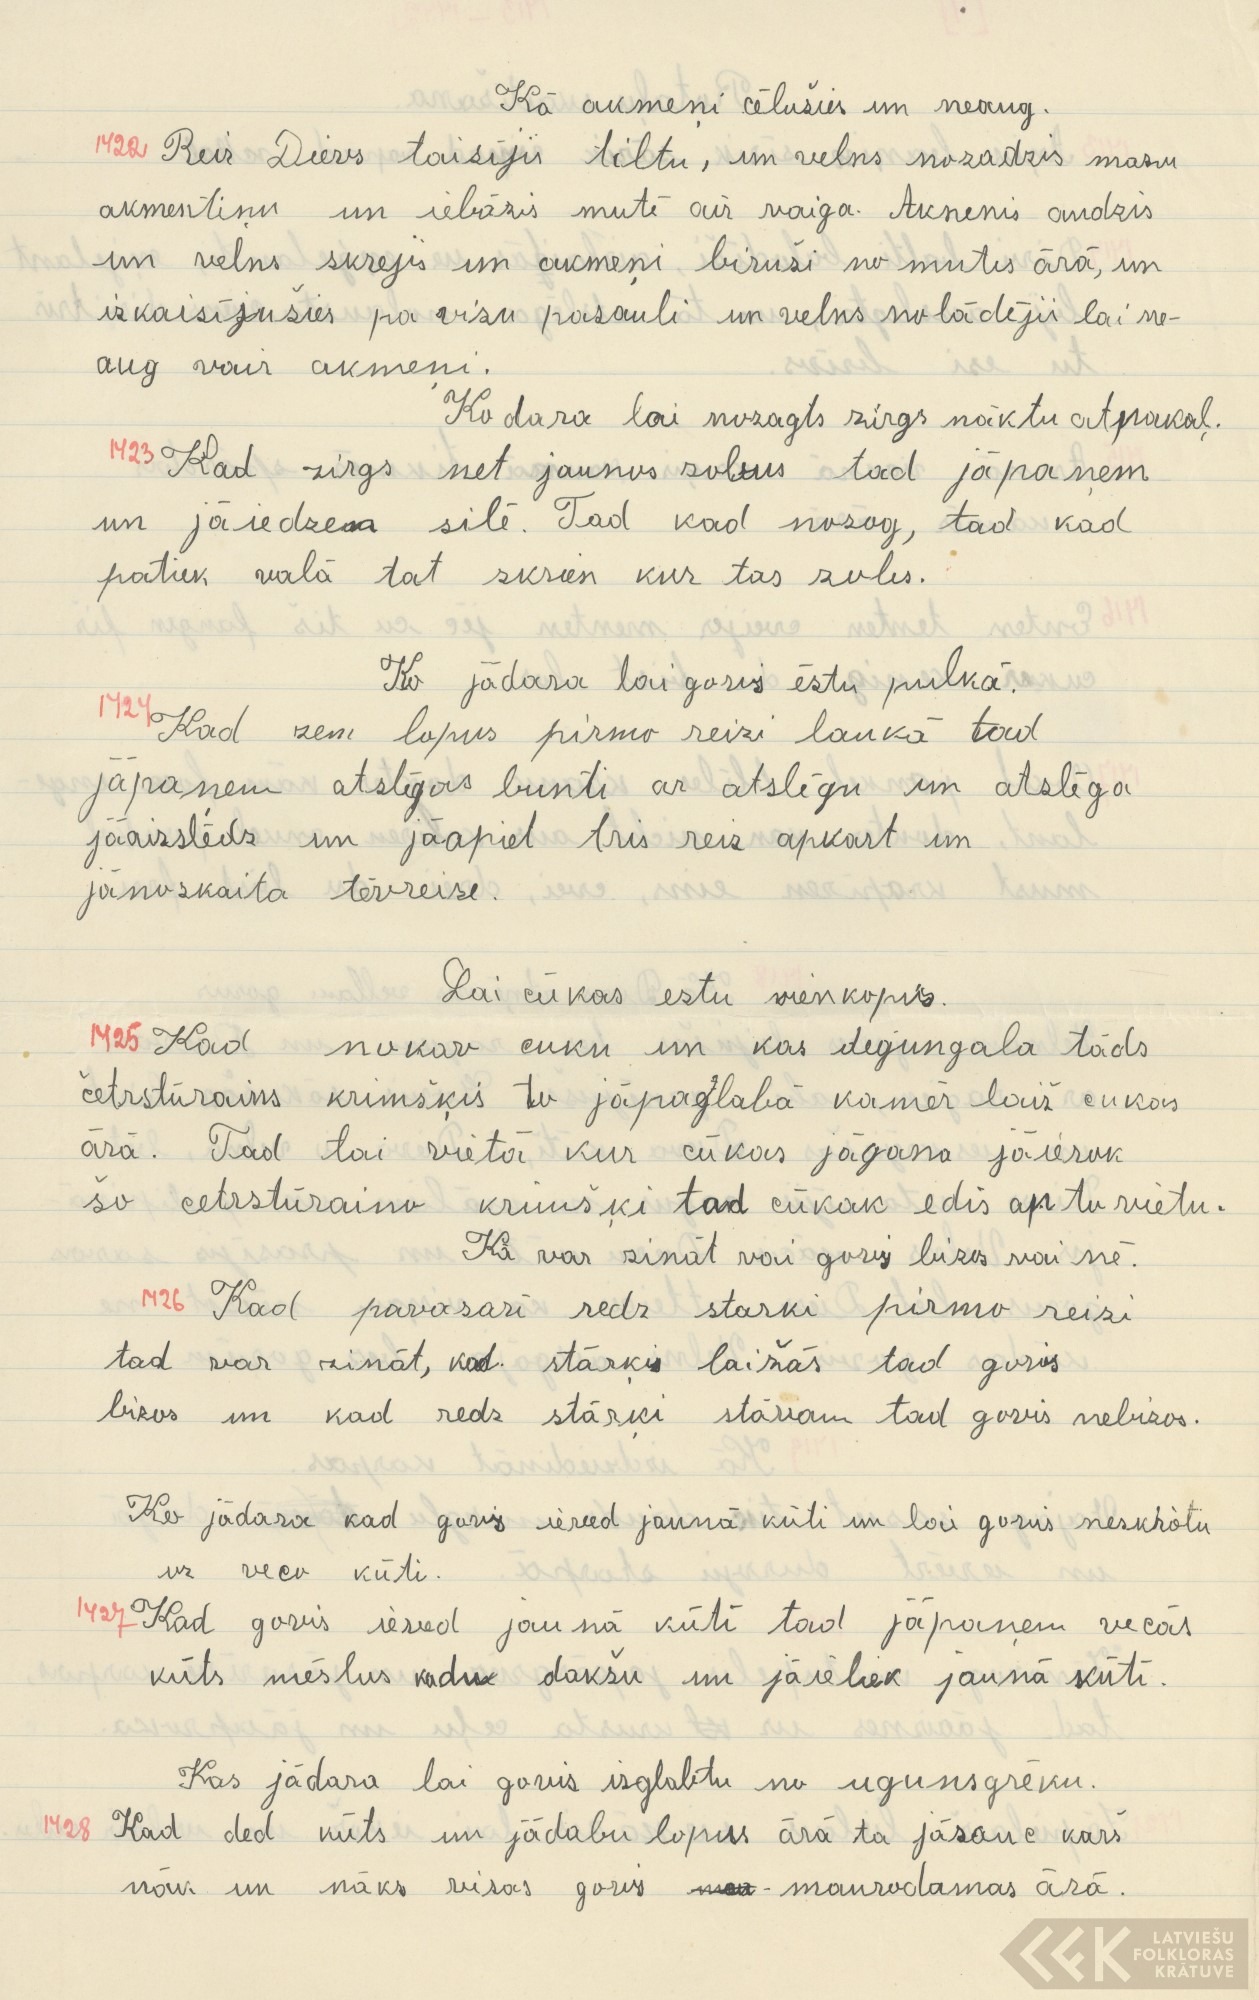 Kā akmeņi cēlušies un neaug.
1422 Reiz Dievs taisījis tiltu, un velns nozadzis mazu
akmentiņu un iebāzis mutē aiz vaiga. Akmenis audzis
un velns skrejis un akmeņi biruši no mutes ārā, un
izkaisījušies pa visu pasauli un velns nolādējis lai ne-
aug vair akmeņi.
Ko dara lai nozagts zirgs nāktu atpakaļ.
1423 Kad zirgs met jaunos zobus tad jāpaņem
un jāiedzen silē. Tad kad nozog, tad kad
patiek vaļā tat skrien kur tas zobs.
Ko jādara lai govis ēstu pulkā.
1424 Kad zem lopus pirmo reizi laukā tad
jāpaņem atslēgas bunti ar atslēgu un atslēga
jāaizslēdz un jāapiet tris reiz apkart un
jānoskaita tēvreize.
Lai cūkas estu vienkopus.
1425 Kad nokav cuku un kas degungala tāds
četrstūrains krimšķis to jāpaglabā kamēr laiž cukas
ārā. Tad tai vietā kur cūkas jāgana jāierok
šo cetrstūraino krimšķi tad cūkak edīs ap to vietu.
Kā var zināt vai govis bizos vai nē.
1426 Kad pavasarī redz starki pirmo reizi
tad var zināt, kad stārķis laižās tad govis
bizos un kad redz stārķi stāvam tad govis nebizos.
Ko jādara kad govis ieved jaunā kūti un lai govis neskrietu
uz veco kūti.
1427 Kad govis ieved jaunā kūtī tad jāpaņem vecās
kūts mēslus kadu dakšu un jāieliek jaunā kūtī.
Kas jādara lai govis izglabtu no ugunsgrēku.
1428 Kad ded kūts un jādabu lopus ārā ta jāsauc karš
nāk un nāks visas govis maurodamas ārā.
LATVIEŠU
FOLKLORAS
KRĀTUVE